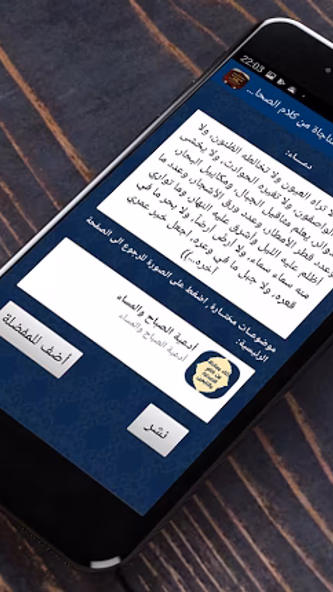 22:03
مناجاة من كلام الصحا...
دعــاء:
لا تراه العيون ولا تخالطه الظنون، ولا
الواصفون، ولا تغيره الحوادث، ولا يخشى
الدوائر، يعلم مثاقيل الجبال، ومكاييل البحار،
وعدد قطر الأمطار، وعدد ورق الأشجار، وعدد ما
أظلم عليه الليل وأشرق عليه النهار، وما تواري
منه سماء سماء، ولا أرض أرضاً، ولا بحر ما في
قعره، ولا جبل ما في وعره، اجعل خير عمري
آخره...))
موضوعات مختارة , اضغط على الصورة للرجوع الى الصفحة
الرئيسية:
أدعية الصباح والمساء
أدعية الصباح والمساء
أضف للمفضلة
نشر